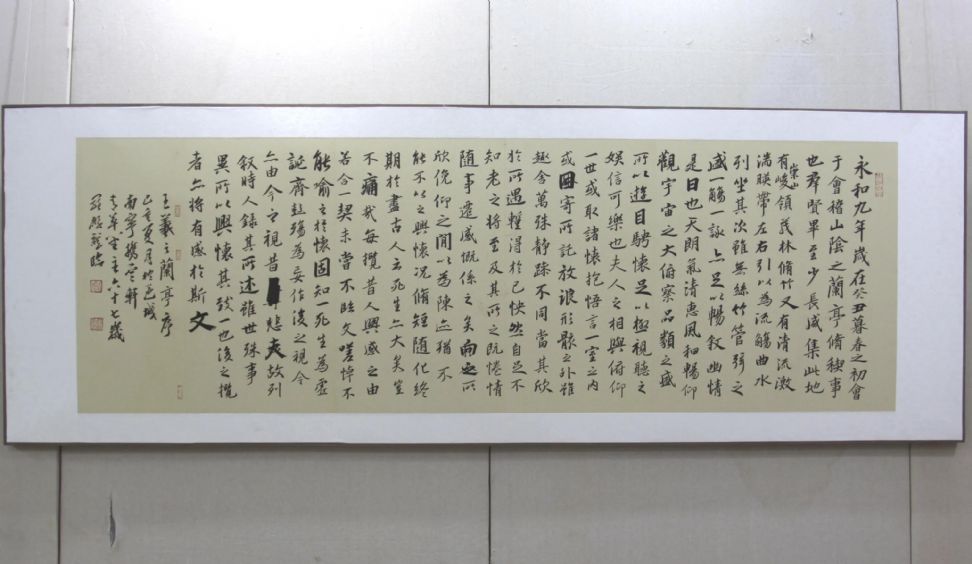 永和九年歲在癸丑暮春之初會
于會稽山陰之蘭亭脩稧事
也羣賢畢至少長咸集此地
有崇山峻領茂林脩竹又有清流激
湍暎帶左右引以為流觴曲水
列坐其次雖無絲竹管弦之
盛一觴一詠亦足以暢敘幽情
是日也天朗氣清惠風和暢仰
觀宇宙之大俯察品類之盛
所以遊目騁懷足以極視聽之
娛信可樂也夫人之相與俯仰
一世或取諸懷抱悟言一室之內
或因寄所託放浪形骸之外雖
趣舍萬殊靜躁不同當其欣
於所遇蹔得於己怏然自足不
知老之將至及其所之既惓情
隨事遷感慨係之矣向之所
欣俛仰之閒以為陳迹猶不
能不以之興懷況脩短隨化終
期於盡古人云死生亦大矣豈
不痛哉每攬昔人興感之由
若合一契未嘗不臨文嗟悼不
能喻之於懷固知一死生為虛
誕齊彭殤為妄作後之視今
亦由今之視昔悲夫故列
敘時人錄其所述雖世殊事
異所以興懷其致一也後之攬
者亦將有感於斯文
王羲之蘭亭序
己亥夏月於邕城
南寧雲軒
主六十七歲
臨